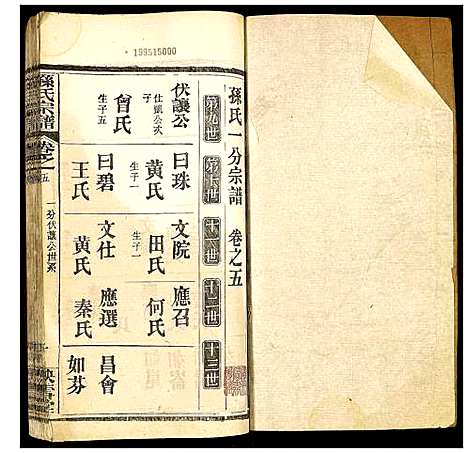 199515000
孫氏一分宗譜 卷之五
第九世
第十世
十一世
十二世
十三世
伏讓公
仕凱公次子
曾氏
生子五
曰珠
黃氏
生子一
曰碧
王氏
文院
田氏
生子一
文仕
黃氏
應召
何氏
應選
秦氏
昌會
如芬
孫氏宗譜
卷之五
一分伏讓公世系